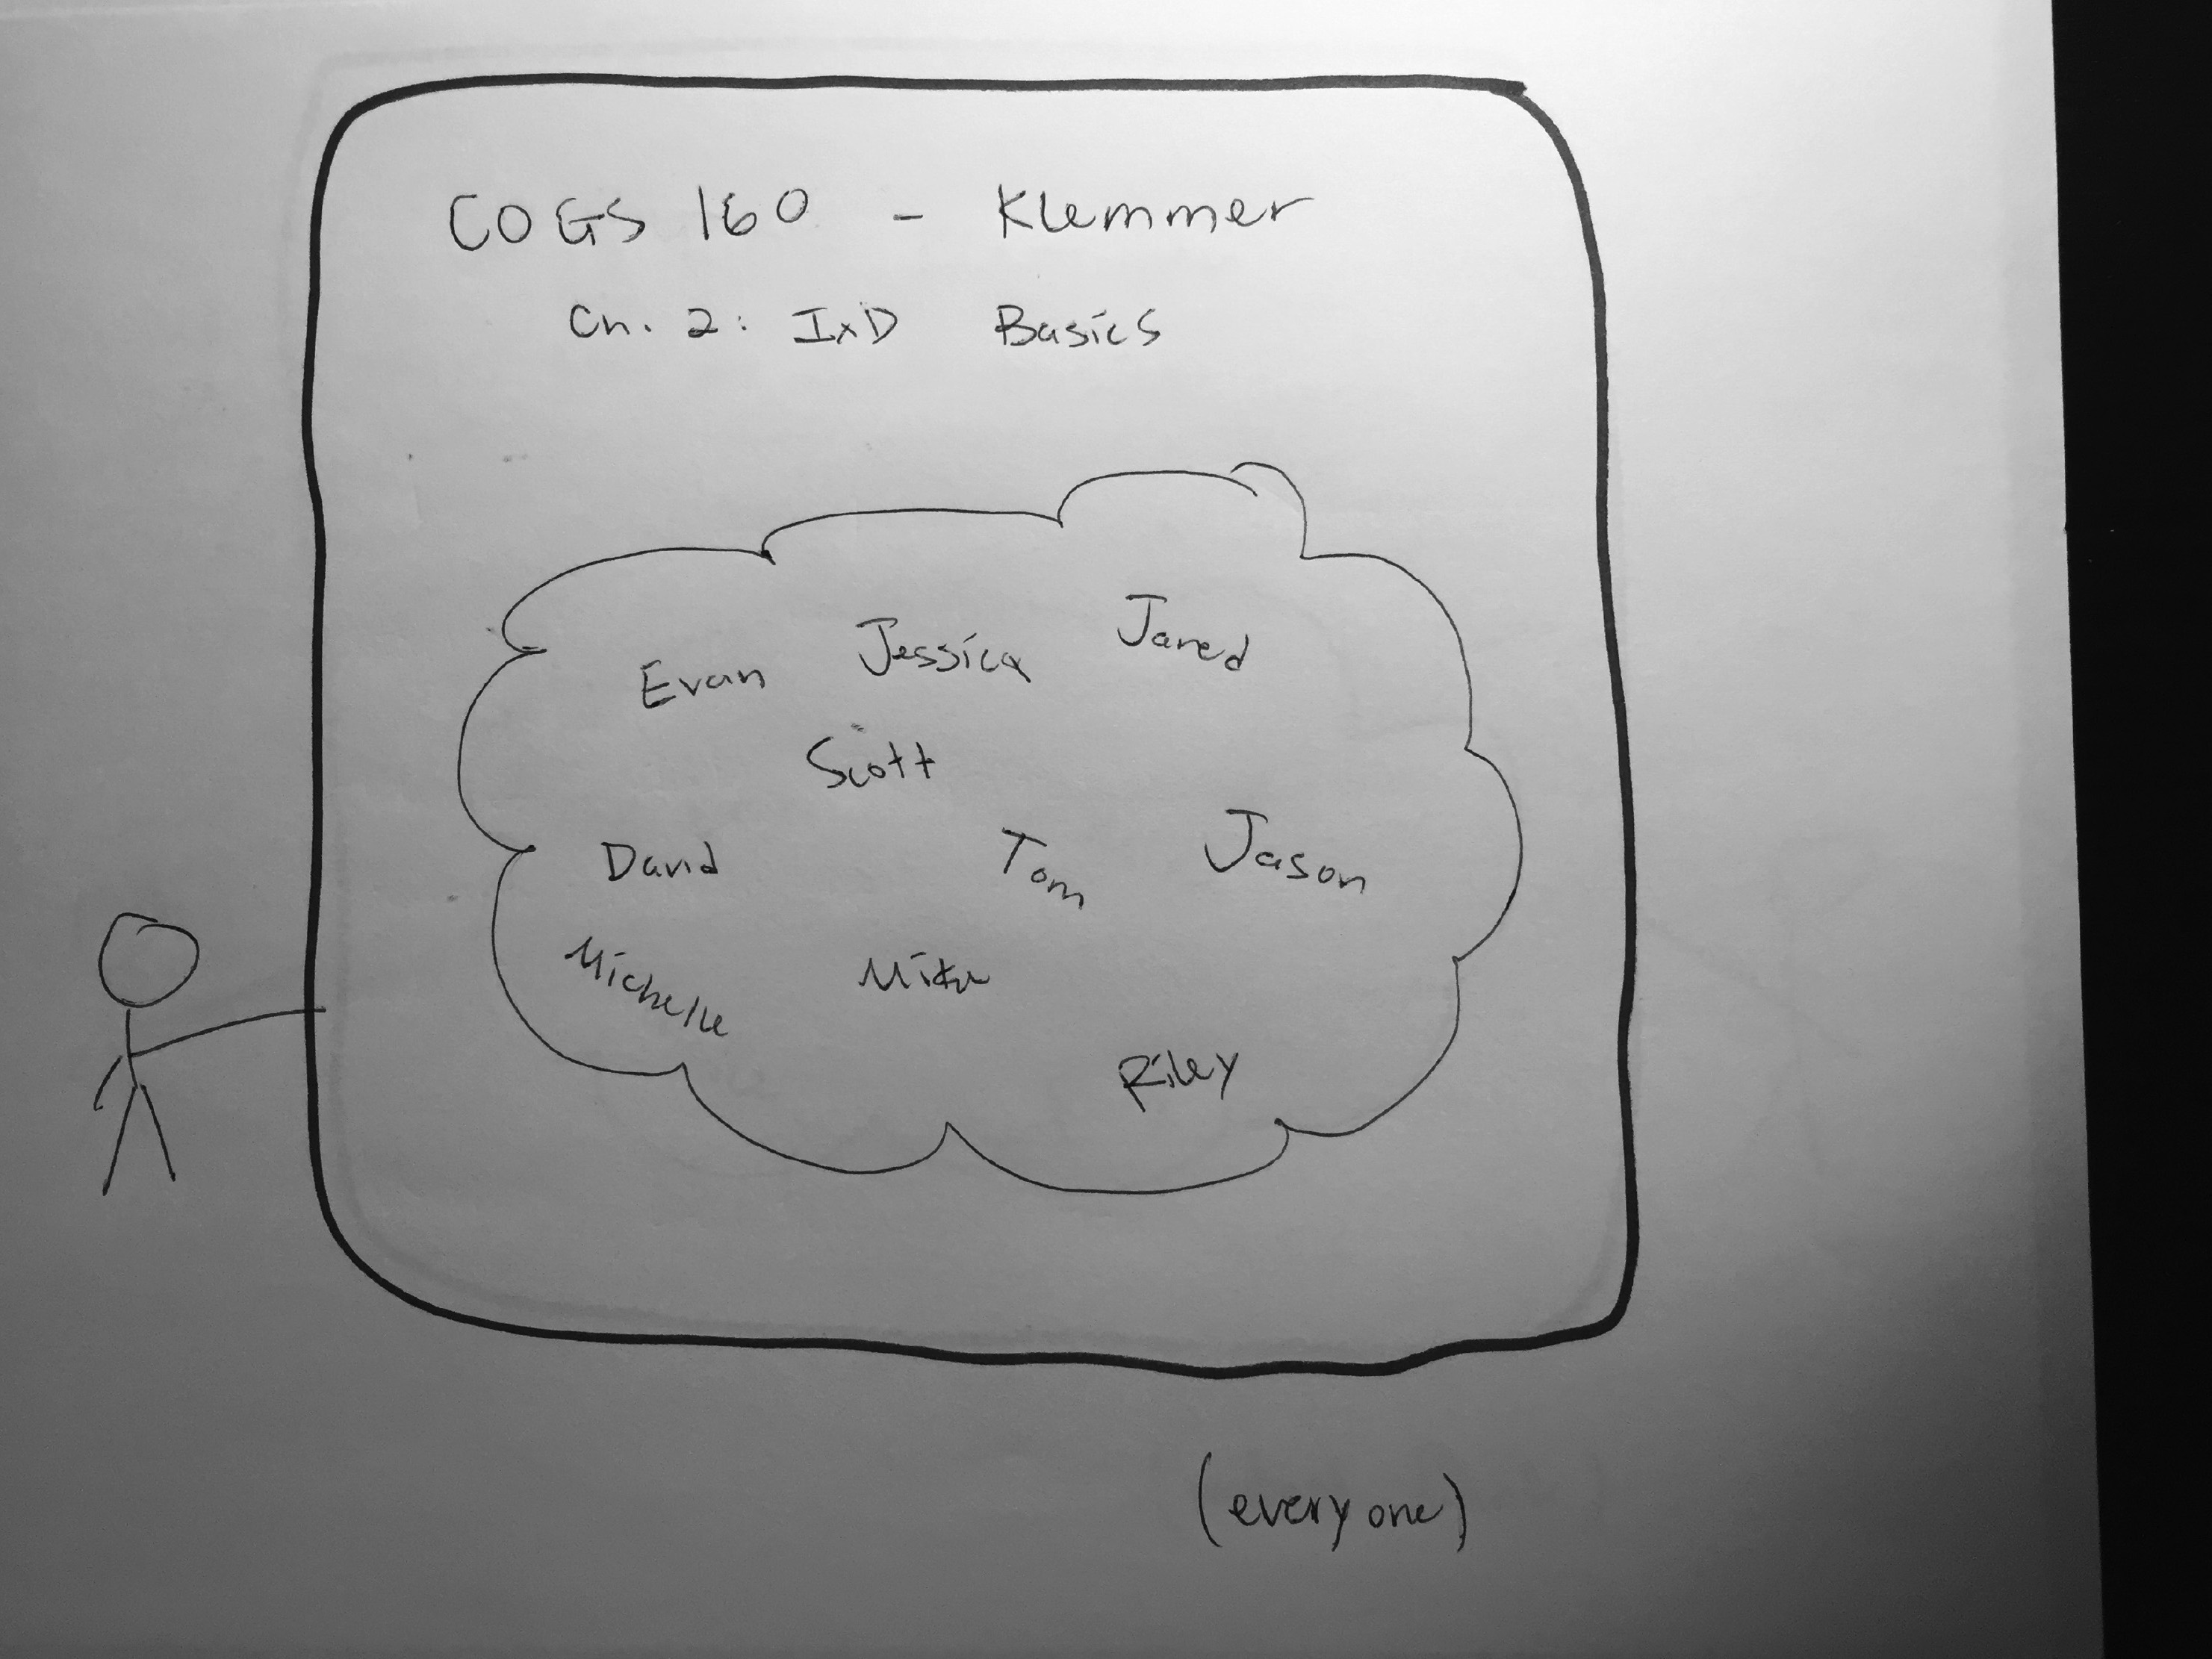 COGS 160 - Klemmer
Ch. 2: IxD Basics
Evan Jessica Jared
Scott
David Tom Jason
Michelle Mike
Riley
(everyone)